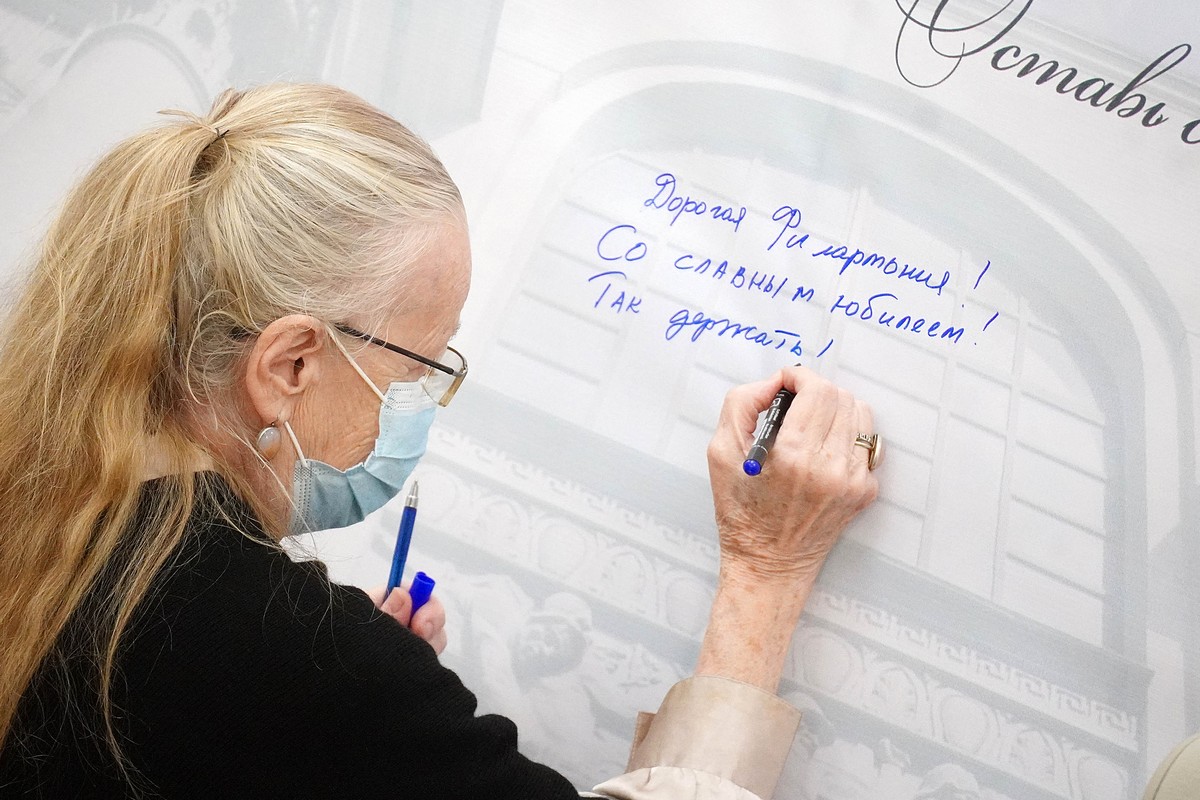 Оставь
Дорогая Филармония!
Со славным юбилеем!
Так держать!